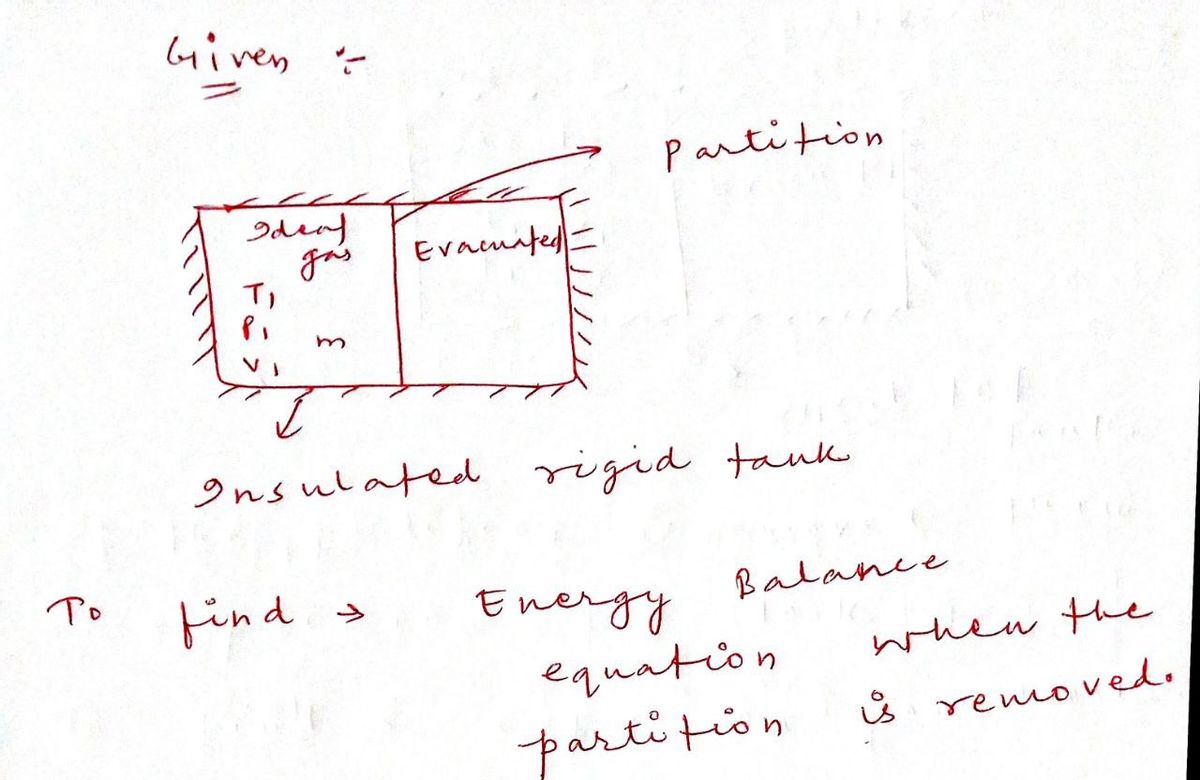 Given :-
Partition
Ideal
gas
Evacuated
T1
P1
m
V1
Insulated rigid tank
To find → Energy Balance
equation when the
partition is removed.